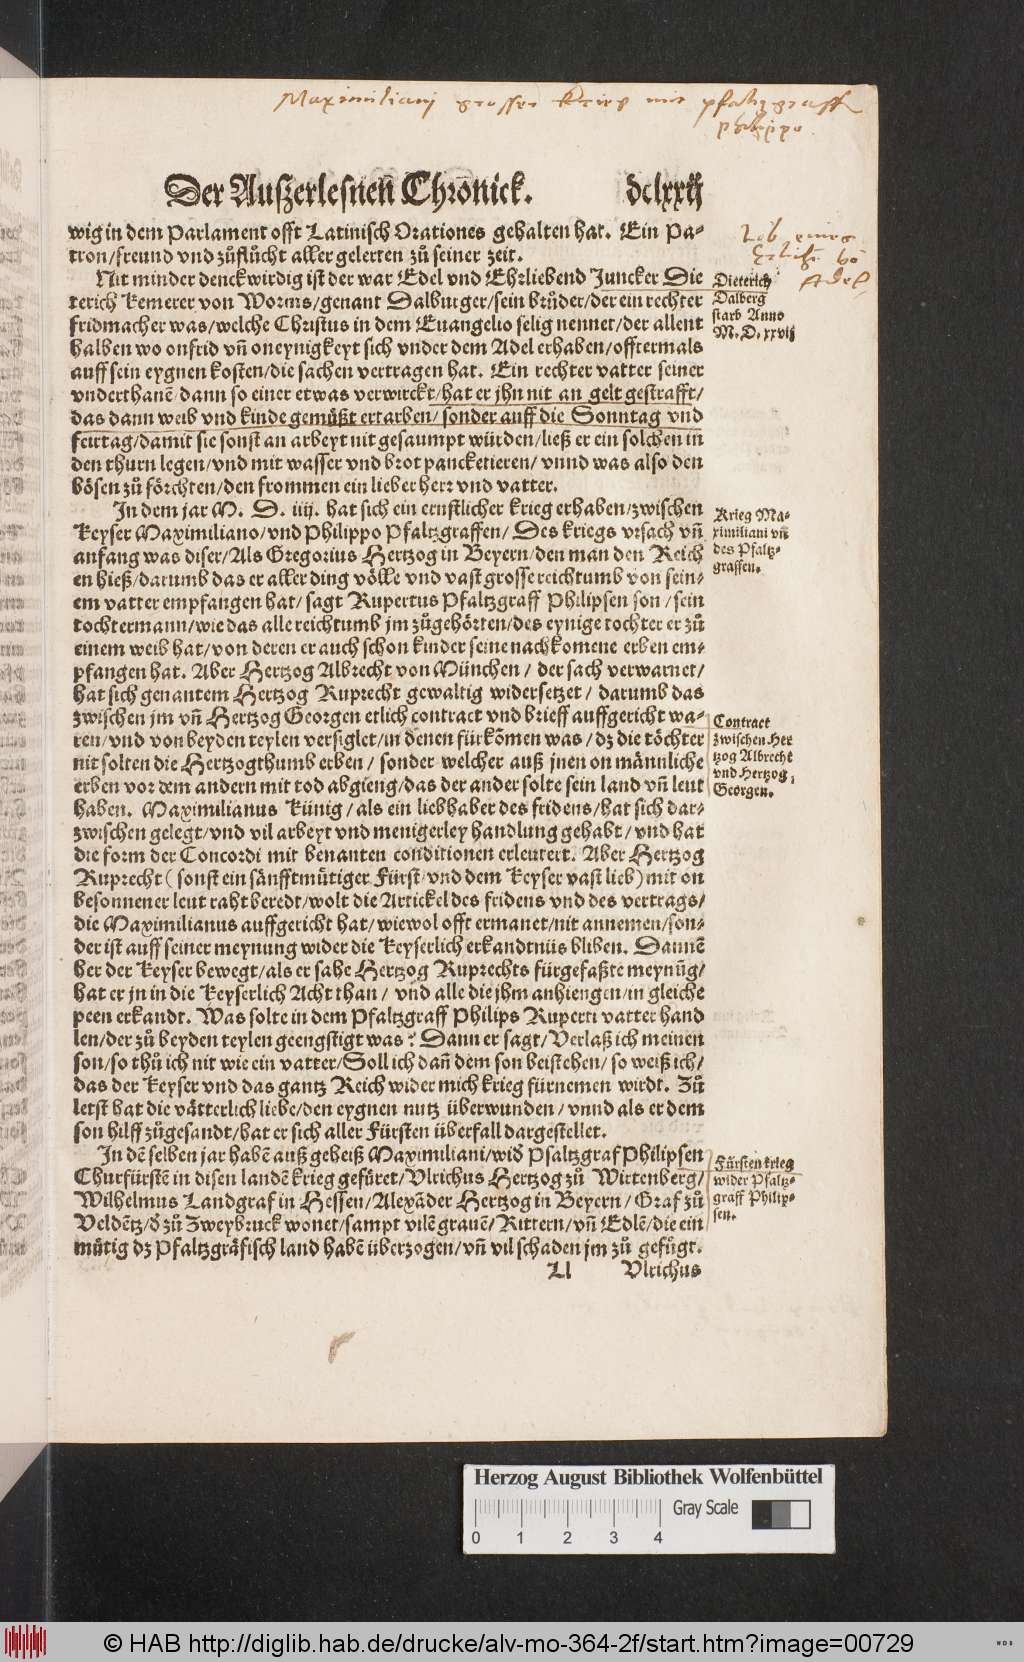 Maximiliani grosser Krieg mit pfaltzgraff
philippo.
Der Auszerlesneñ Chrõnick. dclxxij
wig in dem Parlament offt Latinisch Orationes gehalten hat. Ein Pa-
tron/freund vnd zůflůcht aller gelerten zů seiner zeit.
Lob eines
Ehrlichẽ võ
Adel
Nit minder denckwirdig ist der war Edel vnd Ehrliebend Juncker Die
terich Kemerer von Worms/genant Dalburger/sein brůder/der ein rechter
fridmacher was/welche Christus in dem Euangelio selig nennet/der allent
halben wo onfrid vñ oneynigkeyt sich vnder dem Adel erhaben/offtermals
auff sein eygnen kosten/die sachen vertragen hat. Ein rechter vatter seiner
vnderthanẽ/dann so einer etwas verwirckt/hat er jhn nit an gelt gestrafft/
das dann weib vnd kinde gemůßt ertarben/sonder auff die Sonntag vnd
feirtag/damit sie sonst an arbeyt nit gesaumpt würden/ließ er ein solchen in
den thurn legen/vnd mit wasser vnd brot pancketieren/vnnd was also den
bösen zů förchten/den frommen ein lieber herr vnd vatter.
Dieterich
Dalberg
starb Anno
M.D.xxvij
In dem jar M. D. iiij. hat sich ein ernstlicher krieg erhaben/zwischen
Keyser Maximiliano/vnd Philippo Pfaltzgraffen/Des kriegs vrsach vñ
anfang was diser/Als Gregorius Hertzog in Beyern/den man den Reich
en hieß/darumb das er aller ding völle vnd vast grosse reichtumb von sein-
em vatter empfangen hat/sagt Rupertus Pfaltzgraff Philipsen son/sein
tochtermann/wie das alle reichtumb jm zůgehörten/des eynige tochter er zů
einem weib hat/von deren er auch schon kinder seine nachkomene erben em-
pfangen hat. Aber Hertzog Albrecht von München/der sach verwarnet/
hat sich genantem Hertzog Ruprecht gewaltig widersetzet/darumb das
zwischen jm vñ Hertzog Georgen etlich contract vnd brieff auffgericht wa-
ren/vnd von beyden teylen versiglet/in denen fürkõmen was/dz die töchter
nit solten die Hertzogthumb erben/sonder welcher auß jnen on männliche
erben vor dem andern mit tod abgieng/das der ander solte sein land vñ leut
haben. Maximilianus Künig/als ein liebhaber des fridens/hat sich dar-
zwischen gelegt/vnd vil arbeyt vnd menigerley handlung gehabt/vnd hat
die form der Concordi mit benanten conditionen erleutert. Aber Hertzog
Ruprecht (sonst ein sänfftmůtiger Fürst/vnd dem Keyser vast lieb) mit on
besonnener leut raht beredt/wolt die Artickel des fridens vnd des vertrags/
die Maximilianus auffgericht hat/wiewol offt ermanet/nit annemen/son-
der ist auff seiner meynung wider die Keyserlich erkandtnüs bliben. Dannẽ
her der Keyser bewegt/als er sahe Hertzog Ruprechts fürgefaßte meynũg/
hat er jn in die Keyserlich Acht than/vnd alle die jhm anhiengen/in gleiche
peen erkandt. Was solte in dem Pfaltzgraff Philips Ruperti vatter hand
len/der zů beyden teylen geengstigt was? Dann er sagt/Verlaß ich meinen
son/so thů ich nit wie ein vatter/Soll ich dañ dem son beistehen/so weiß ich/
das der Keyser vnd das gantz Reich wider mich krieg fürnemen wirdt. Zů
letst hat die vätterlich liebe/den eygnen nutz überwunden/vnnd als er dem
son hilff zůgesandt/hat er sich aller Fürsten überfall dargestellet.
Krieg Ma-
ximiliani vñ
des Pfaltz-
graffen.
Contract
zwischen Her
tzog Albrecht
vnd Hertzog
Georgen.
In dẽ selben jar habẽ auß geheiß Maximiliani/wid' Pfaltzgraf Philipsen
Churfürstẽ in disen landẽ krieg gefüret/Vlrichus Hertzog zů Wirtenberg/
Wilhelmus Landgraf in Hessen/Alexãder Hertzog in Beyern/Graf zů
Veldẽtz/d' zů Zweybruck wonet/sampt vilẽ grauẽ/Rittern/vñ Edlẽ/die ein
mütig dz Pfaltzgräfisch land habẽ überzogen/vñ vil schaden jm zů gefůgt.
Fürsten krieg
wider Pfaltz-
graff Philip-
sen.
Ll Vlrichus
Herzog August Bibliothek Wolfenbüttel
Gray Scale
0 1 2 3 4
© HAB http://diglib.hab.de/drucke/alv-mo-364-2f/start.htm?image=00729